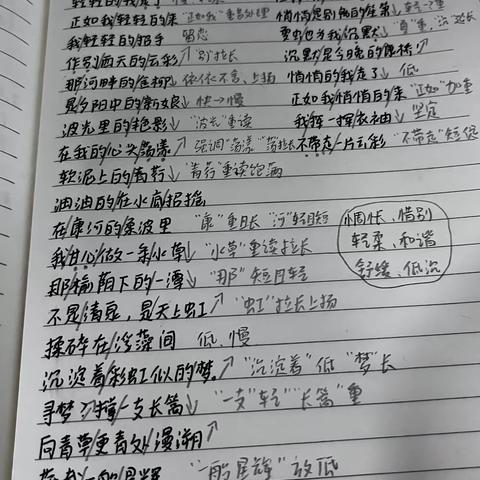 轻轻的我走了
正如我轻轻的来 "正如我"重音处理 悄悄是别离的笙箫↓
我轻轻的招手 留恋 夏虫也为我沉默↓ "夏"重,沉 延长
作别西天的云彩↗ "别"拉长 沉默是今晚的康桥↗
那河畔的金柳↓ 依依不舍、上扬 悄悄的我走了↓ 低
是夕阳中的新娘↓ 快→慢 正如我悄悄的来 "正如"加重
波光里的艳影↓ "波光"重读 我挥一挥衣袖↓ 坚定
在我的心头荡漾↗ 强调"荡漾" "荡"拉长 不带走/一片云彩 "不带走"短促
软泥上的青荇↓ "青荇"重读饱满
油油的在水底招摇
在康河的柔波里 "康"重且长 "河"轻且短
我甘心/做一条水草↓ "水草"重读拉长
那榆荫下的一潭↓ "那"短且轻
不是清泉,是天上虹↗ "虹"拉长上扬
揉碎在/浮藻间 低、慢
沉淀着彩虹似的梦。↗ "沉淀着"低 "梦"长
寻梦?撑/一支长篙↓ "一支"轻 "长篙"重
向青草更青处/漫溯↗
"一船星辉"放低
惆怅、惜别
轻柔、和谐
舒缓、低沉